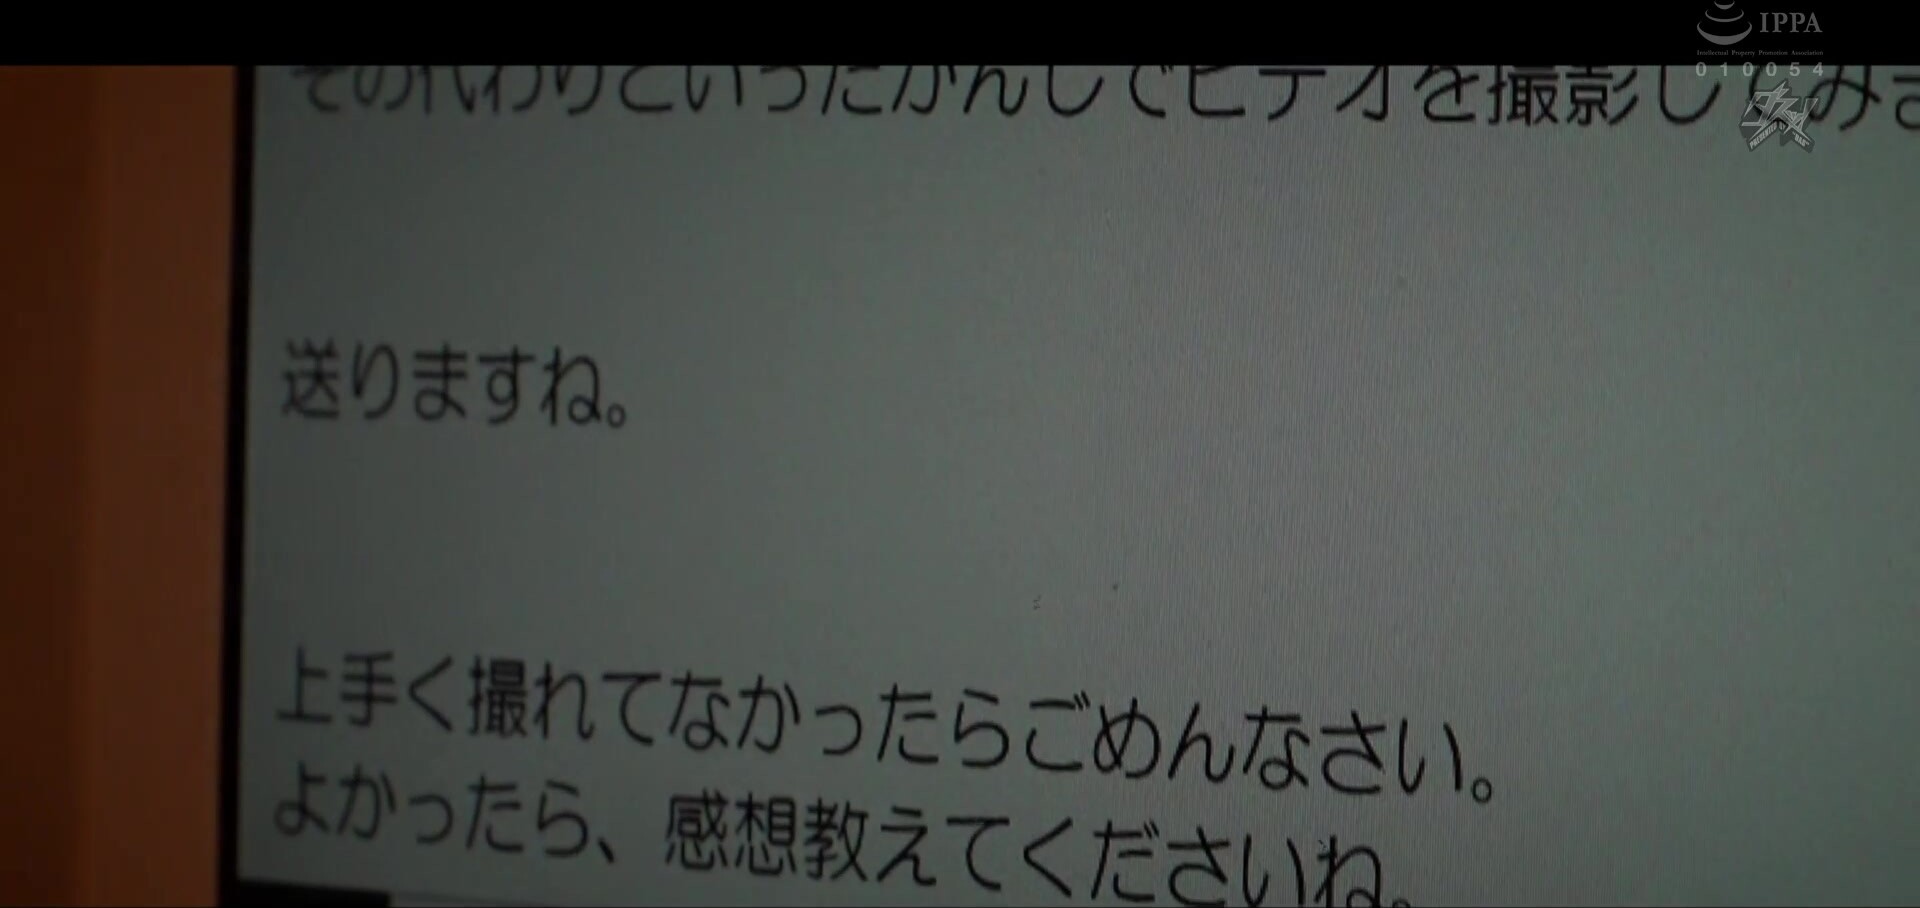 IPPA
Intellectual Property Promotion Association
010054
その代わりといったかんじでビデオを撮影してみま
送りますね。
上手く撮れてなかったらごめんなさい。
よかったら、感想教えてくださいね。